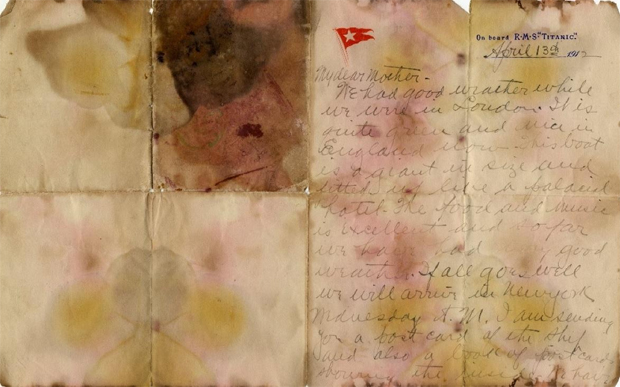 On board R·M·S "TITANIC."
April 13th 1912
My dear Mother-
We had good weather while
we were in London. It is
quite green and nice in
England now. This boat
is a giant in size and
fitted up like a palacial
hotel. The food and music
is excellent and so far
we have had very good
weather. If all goes well
we will arrive in New york
Wednesday A.M. I am sending
you a post card of the ship
and also a book of postcards
showing the inside